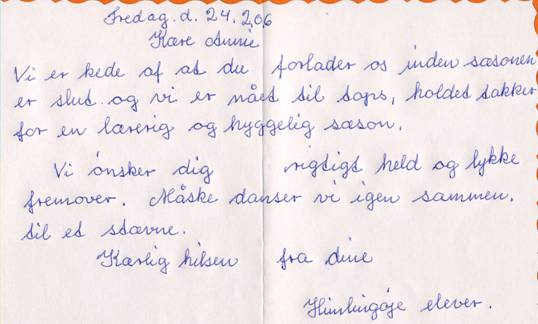 Fredag. d. 24. 2.06
Kære Annie
Vi er kede af at du forlader os inden sæsonen
er slut og vi er nået til tops, holdet takker
for en lærerig og hyggelig sæson.
Vi ønsker dig rigtigt held og lykke
fremover. Måske danser vi igen sammen.
til et stævne.
Kærlig hilsen fra dine
Himlingøje elever.